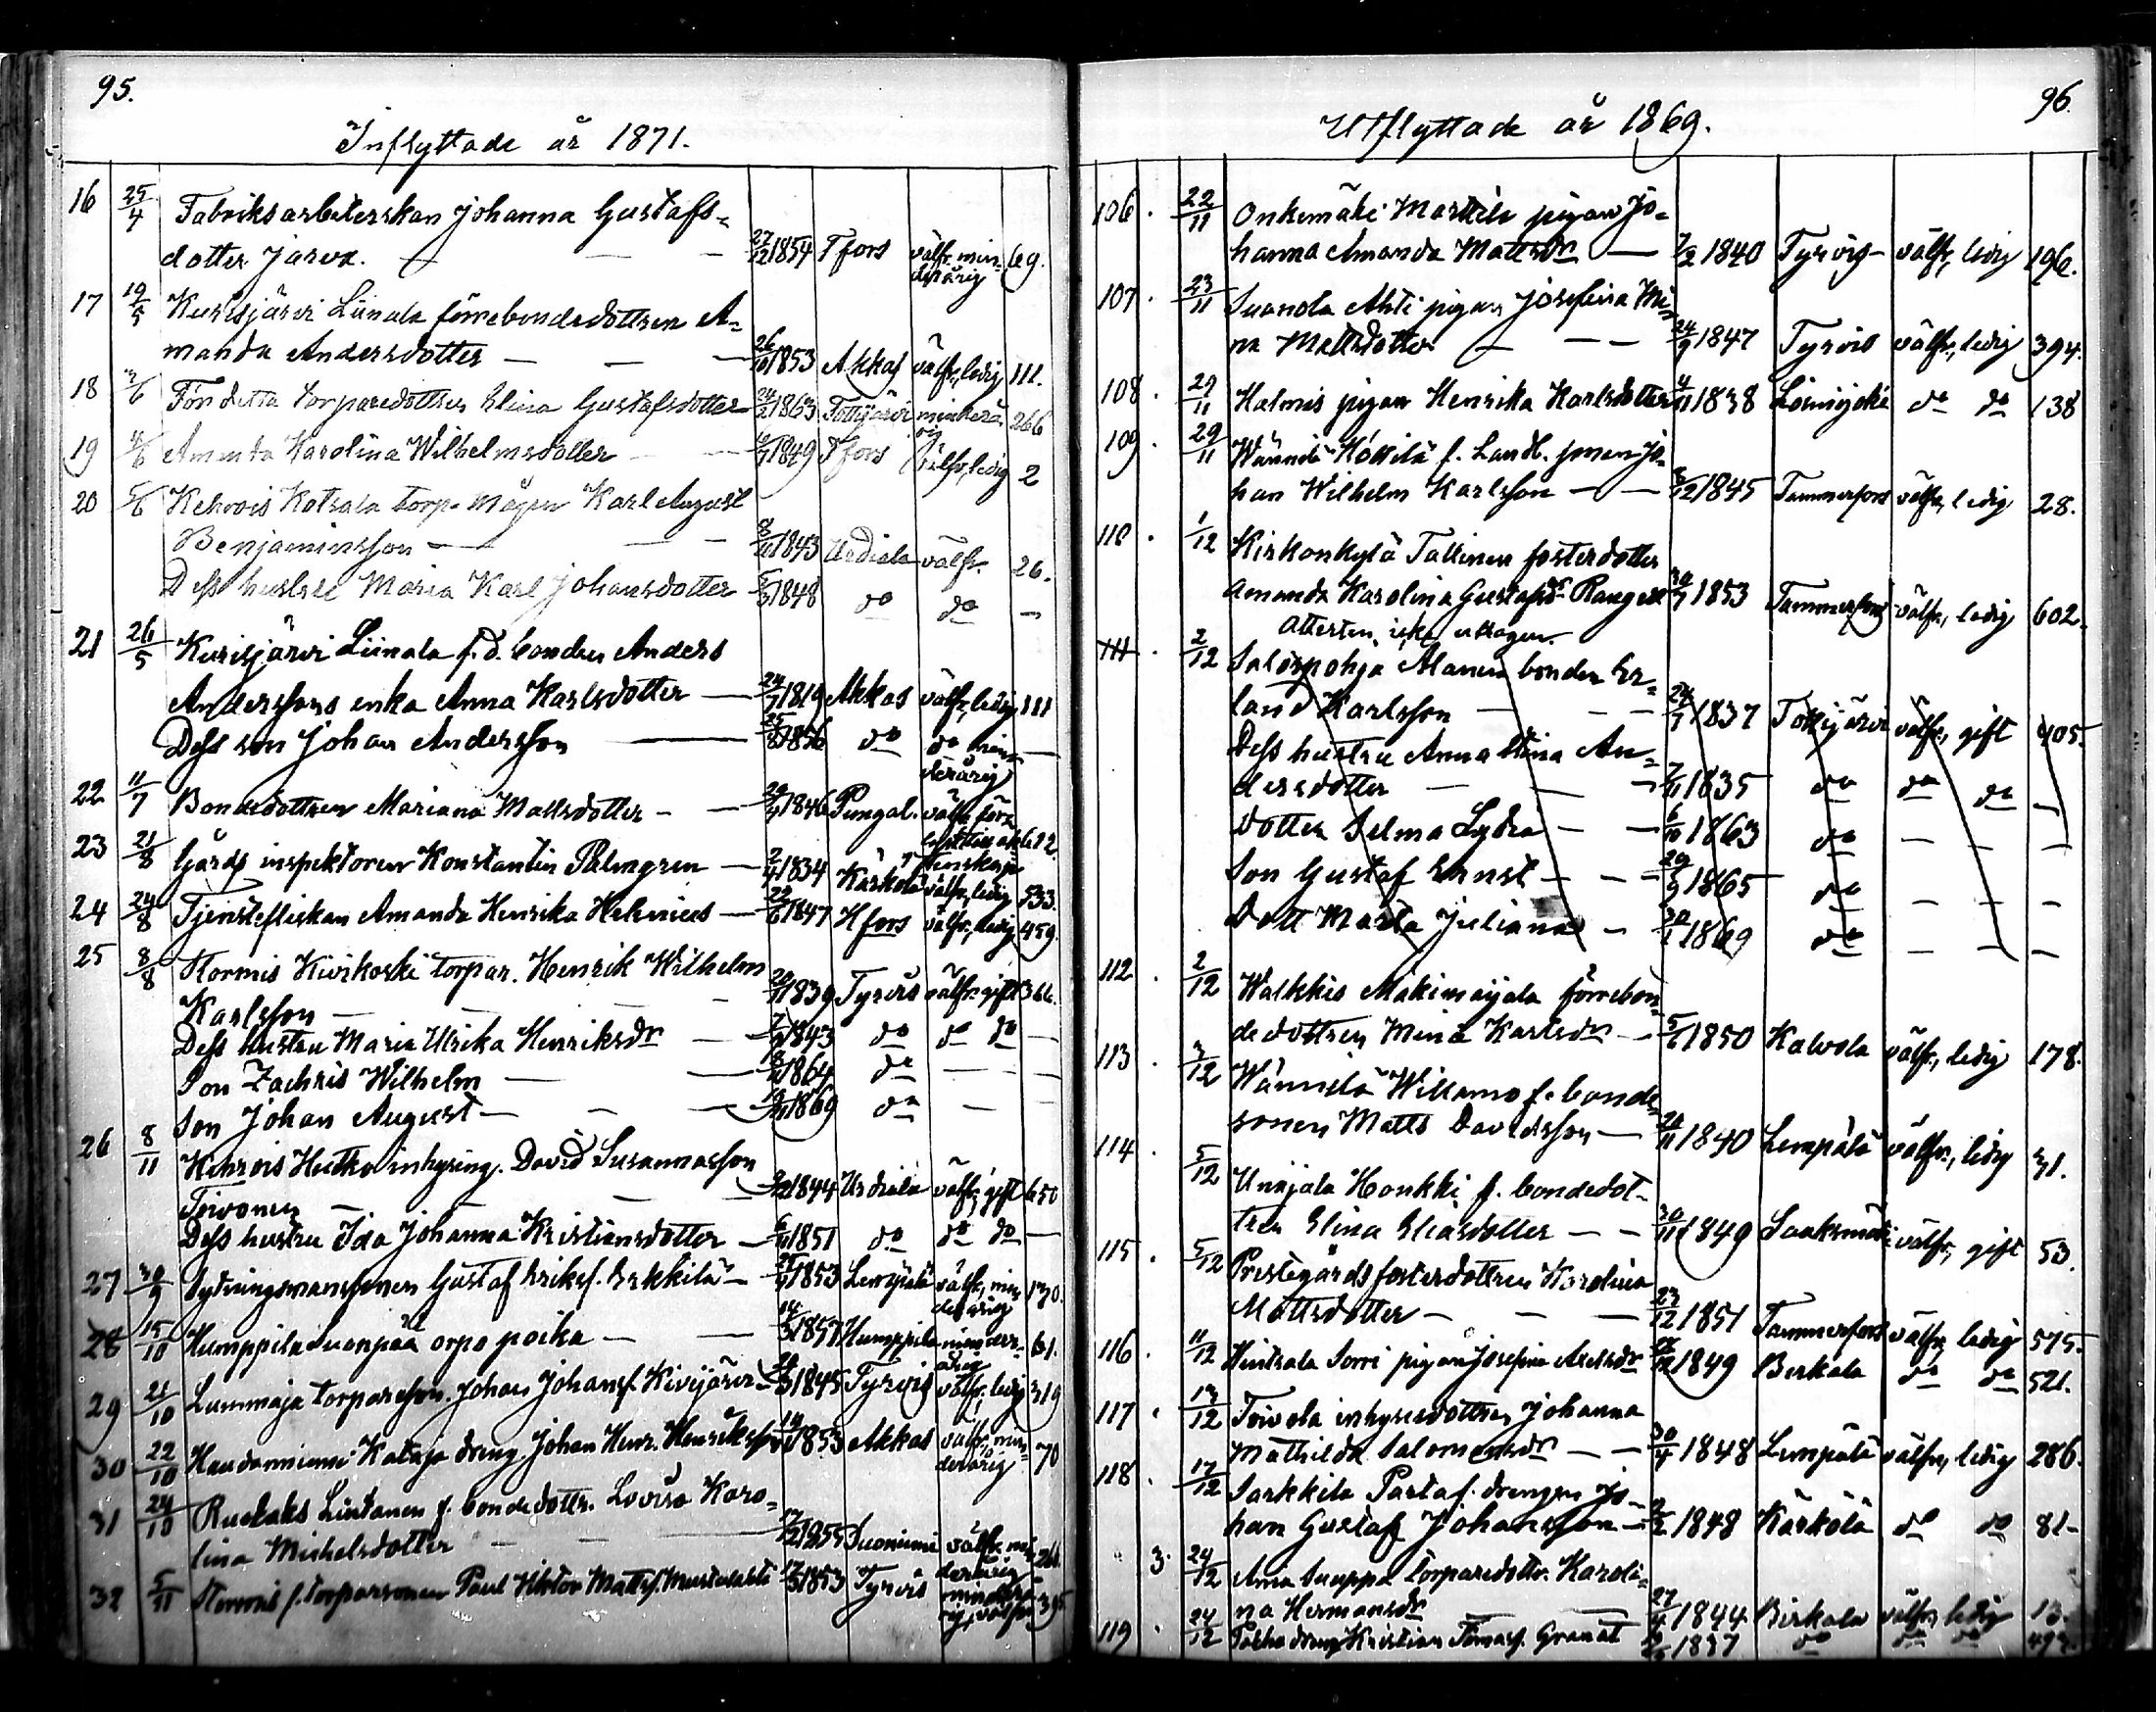 95.
Inflyttade år 1871.
16 25/4 Fabriksarbeterskan Johanna Gustafs-
dotter Jarva. 27/12 1854 Tfors välfr. min- 69.
derårig
17 19/5 Kurisjärvi Liinala förrebondedottren A-
manda Andersdotter 26/10 1853 Akkas välfr., ledig 111.
18 Förr detta torparedottren Elina Gustafsdotter 1863 Tottijärvi minderå- 266
rig
19 4/6 Amanda Karolina Wilhelmsdotter 1849 Tfors välfr., ledig 2
20 Kehrois Kotsala torp. mågen Karl August
Benjaminsson 1843 Urdiala välfr. 26.
Dess hustru Maria Karl Johansdotter 1848 do do
21 26/5 Kurisjärvi Liinala f. d. bonden Anders
Anderssons enka Anna Karlsdotter 24/7 1819 Akkas välfr., ledig 111
Dess son Johan Andersson 25/8 1856 do do min-
derårig
22 11/7 Bondedottren Mariana Mattsdotter 1846 Pungal. välfr. 612.
23 21/8 Gårds inspektoren Konstantin Palmgren 2/4 1834 Kärkölä välfr., ledig 533.
24 24/8 Tjensteflickan Amanda Henrika Helenius 22/6 1847 Hfors välfr., ledig 459.
25 8/8 Stormis Kivikoski torpar. Henrik Wilhelm
Karlsson 1839 Tyrvis välfr. gift 366.
Dess hustru Maria Ulrika Henriksdr 1843 do do do
Son Zachris Wilhelm 1864 do
Son Johan August 1869 do
26 8/11 Kehrois inhysing. David Susannasson
Toivonen 1844 Urdiala välfr., gift 650
Dess hustru Ida Johanna Kristiansdotter 1851 do do do
27 30/9 Sytningsmanssonen Gustaf Eriksf. Erkkilä 1853 Lempälä välfr., min- 130.
derårig
28 15/10 Humppila Suonpää orpo poika 14/3 1857 Humppila minder- 61.
årig
29 21/10 Lummaja torpareson. Johan Johansf. Kivijärvi 1845 Tyrvis välfr., ledig 319
30 22/10 Kataja dreng Johan Henr. Henriksson 1853 Akkas välfr., min- 70
derårig
31 24/10 Liutanen f. bondedottr. Lovisa Karo-
lina Mickelsdotter 1855 Suoniemi välfr. min-
derårig
32 5/11 Stormis f. torparsonen Paul Viktor Mattsf. 1853 Tyrvis minderå-
rig, välfr.
96.
Utflyttade år 1869.
106. 22/11 Onkemäki Marttila pigan Jo-
hanna Amanda Mattsdr 7/2 1840 Tyrvis välfr., ledig 196.
107. 23/11 Suonola Ahti pigan Josefina Mi-
na Mattsdotter 24/9 1847 Tyrvis välfr., ledig 394.
108. 29/11 Halmis pigan Henrika Karlsdotter 4/11 1838 Loimijoki do do 138
109. 29/11 Wännilä f. Landb. sonen Jo-
han Wilhelm Karlsson 1845 Tammerfors välfr., ledig 28.
110. 1/12 Kirkonkylä Tallinen fosterdotter
Amanda Karolina Gustafsdr 1853 Tammerfors välfr., ledig 602.
Attesten icke uttagen.
111. 2/12 Salospohja Alanen bonden Er-
land Karlsson 24/1 1837 Tottijärvi välfr., gift 405.
Dess hustru Anna Stina An-
dersdotter 1835 do do do
Dotter Selma Lydia 6/10 1863 do
Son Gustaf Ernst 29/9 1865 do
Dott Maria Juliana 1869 do
112. 2/12 Walkkis Mäkimaijala förrebon-
dedottren Mina Karlsdr 1850 Kalvola välfr., ledig 178.
113. 3/12 Wännilä Willamo f. bonde-
sonen Matts Davidsson 1840 Lempälä välfr., ledig 31.
114. 5/12 Unajala Honkki f. bondedot-
tren Elina Eliasdotter 30/11 1849 Saaksmäki välfr., gift 53.
115. 5/12 Prestegårds fosterdottren Karolina
Mattsdotter 23/12 1851 Tammerfors välfr., ledig 575.
116. 11/12 Hinsala Sorri pigan Josefina Axelsdr 1849 Birkala do do 521.
117. 13/12 Toivola inhysesdottren Johanna
Mathilda Salomonsdr 30/4 1848 Lempälä välfr., ledig 286.
118. 17/12 Sarkkila Parta f. drengen Jo-
han Gustaf Johansson 1848 Kärkölä do do 81
3. 24/12 Anna torparedottr. Karoli-
na Hermansdr 1844 Birkala välfr., ledig 13.
119. 24/12 dreng Kristian Tomasf. Granat 1837 do do do